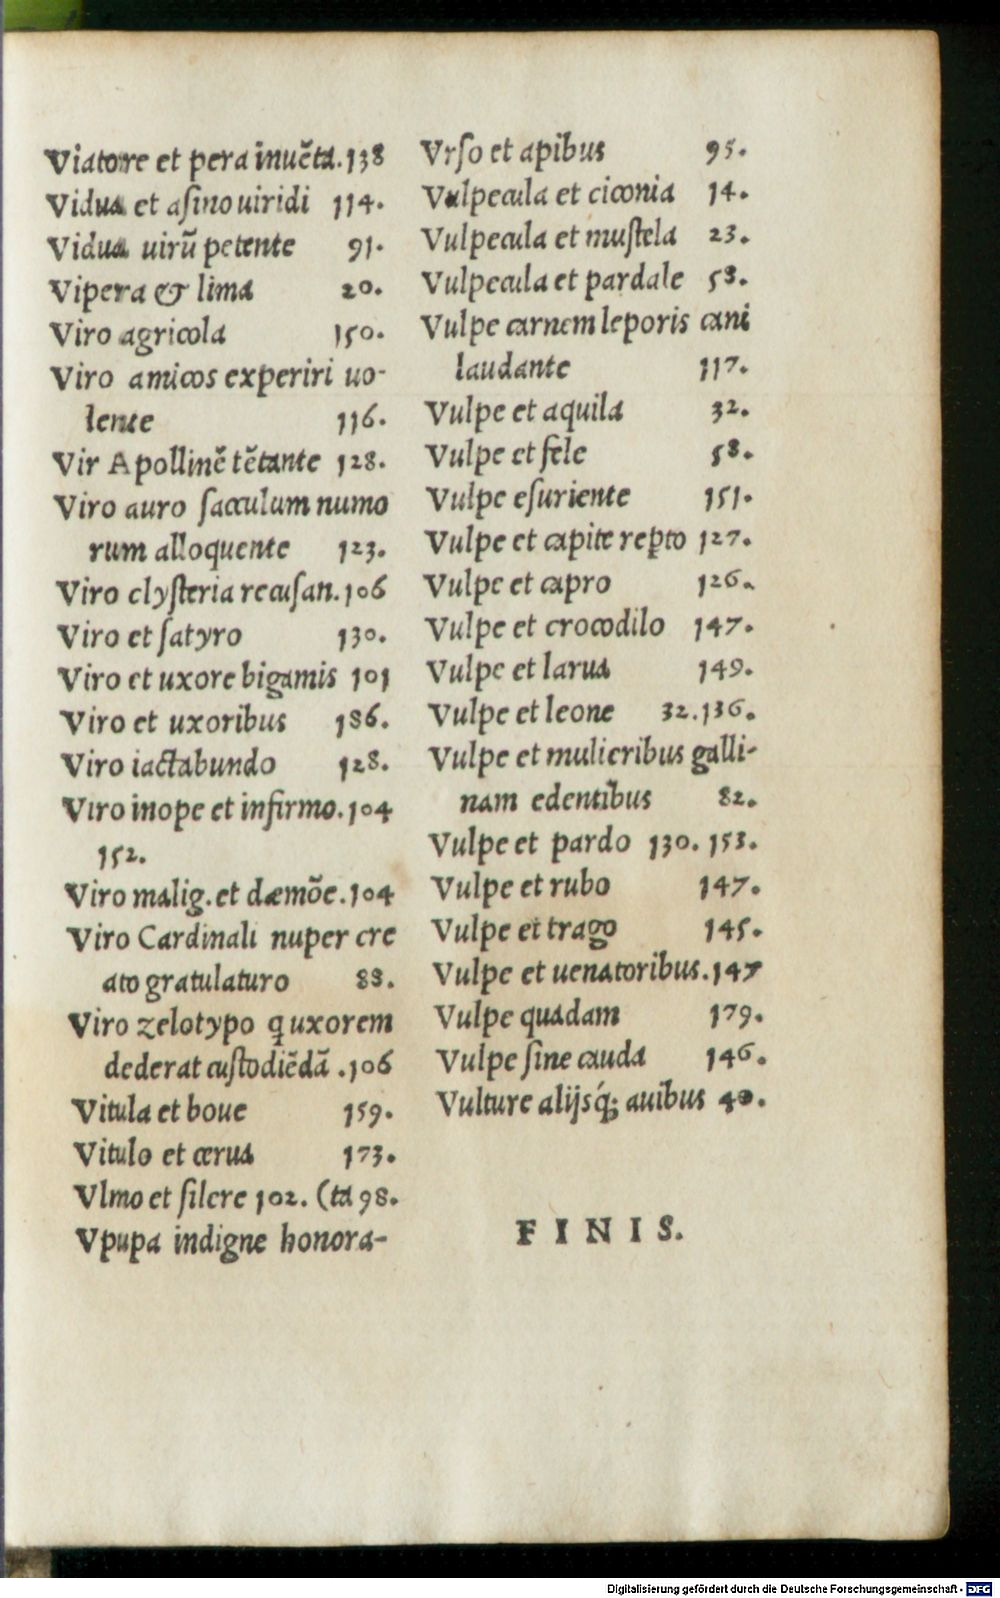 Viatore et pera inuẽta.138
Vidua et asino uiridi 114.
Vidua uirũ petente 91.
Vipera & lima 20.
Viro agricola 150.
Viro amicos experiri uo-
lente 116.
Vir Apollinẽ tẽtante 128.
Viro auro sacculum numo
rum alloquente 123.
Viro clysteria recusan.106
Viro et satyro 130.
Viro et uxore bigamis 101
Viro et uxoribus 186.
Viro iactabundo 128.
Viro inope et infirmo.104
152.
Viro malig. et dæmõe.104
Viro Cardinali nuper cre
ato gratulaturo 88.
Viro zelotypo q uxorem
dederat custodiẽdã .106
Vitula et boue 159.
Vitulo et cerua 173.
Vlmo et silere 102. (ta 98.
Vpupa indigne honora-
Vrso et apibus 95.
Vulpecula et ciconia 14.
Vulpecula et mustela 23.
Vulpecula et pardale 58.
Vulpe carnem leporis cani
laudante 117.
Vulpe et aquila 32.
Vulpe et fele 58.
Vulpe esuriente 151.
Vulpe et capite rep̱to 127.
Vulpe et capro 126.
Vulpe et crocodilo 147.
Vulpe et larua 149.
Vulpe et leone 32.136.
Vulpe et mulieribus galli-
nam edentibus 82.
Vulpe et pardo 130. 153.
Vulpe et rubo 147.
Vulpe et trago 145.
Vulpe et uenatoribus.147
Vulpe quadam 179.
Vulpe sine cauda 146.
Vulture alijsq́; auibus 40.
FINIS.
Digitalisierung gefördert durch die Deutsche Forschungsgemeinschaft - DFG